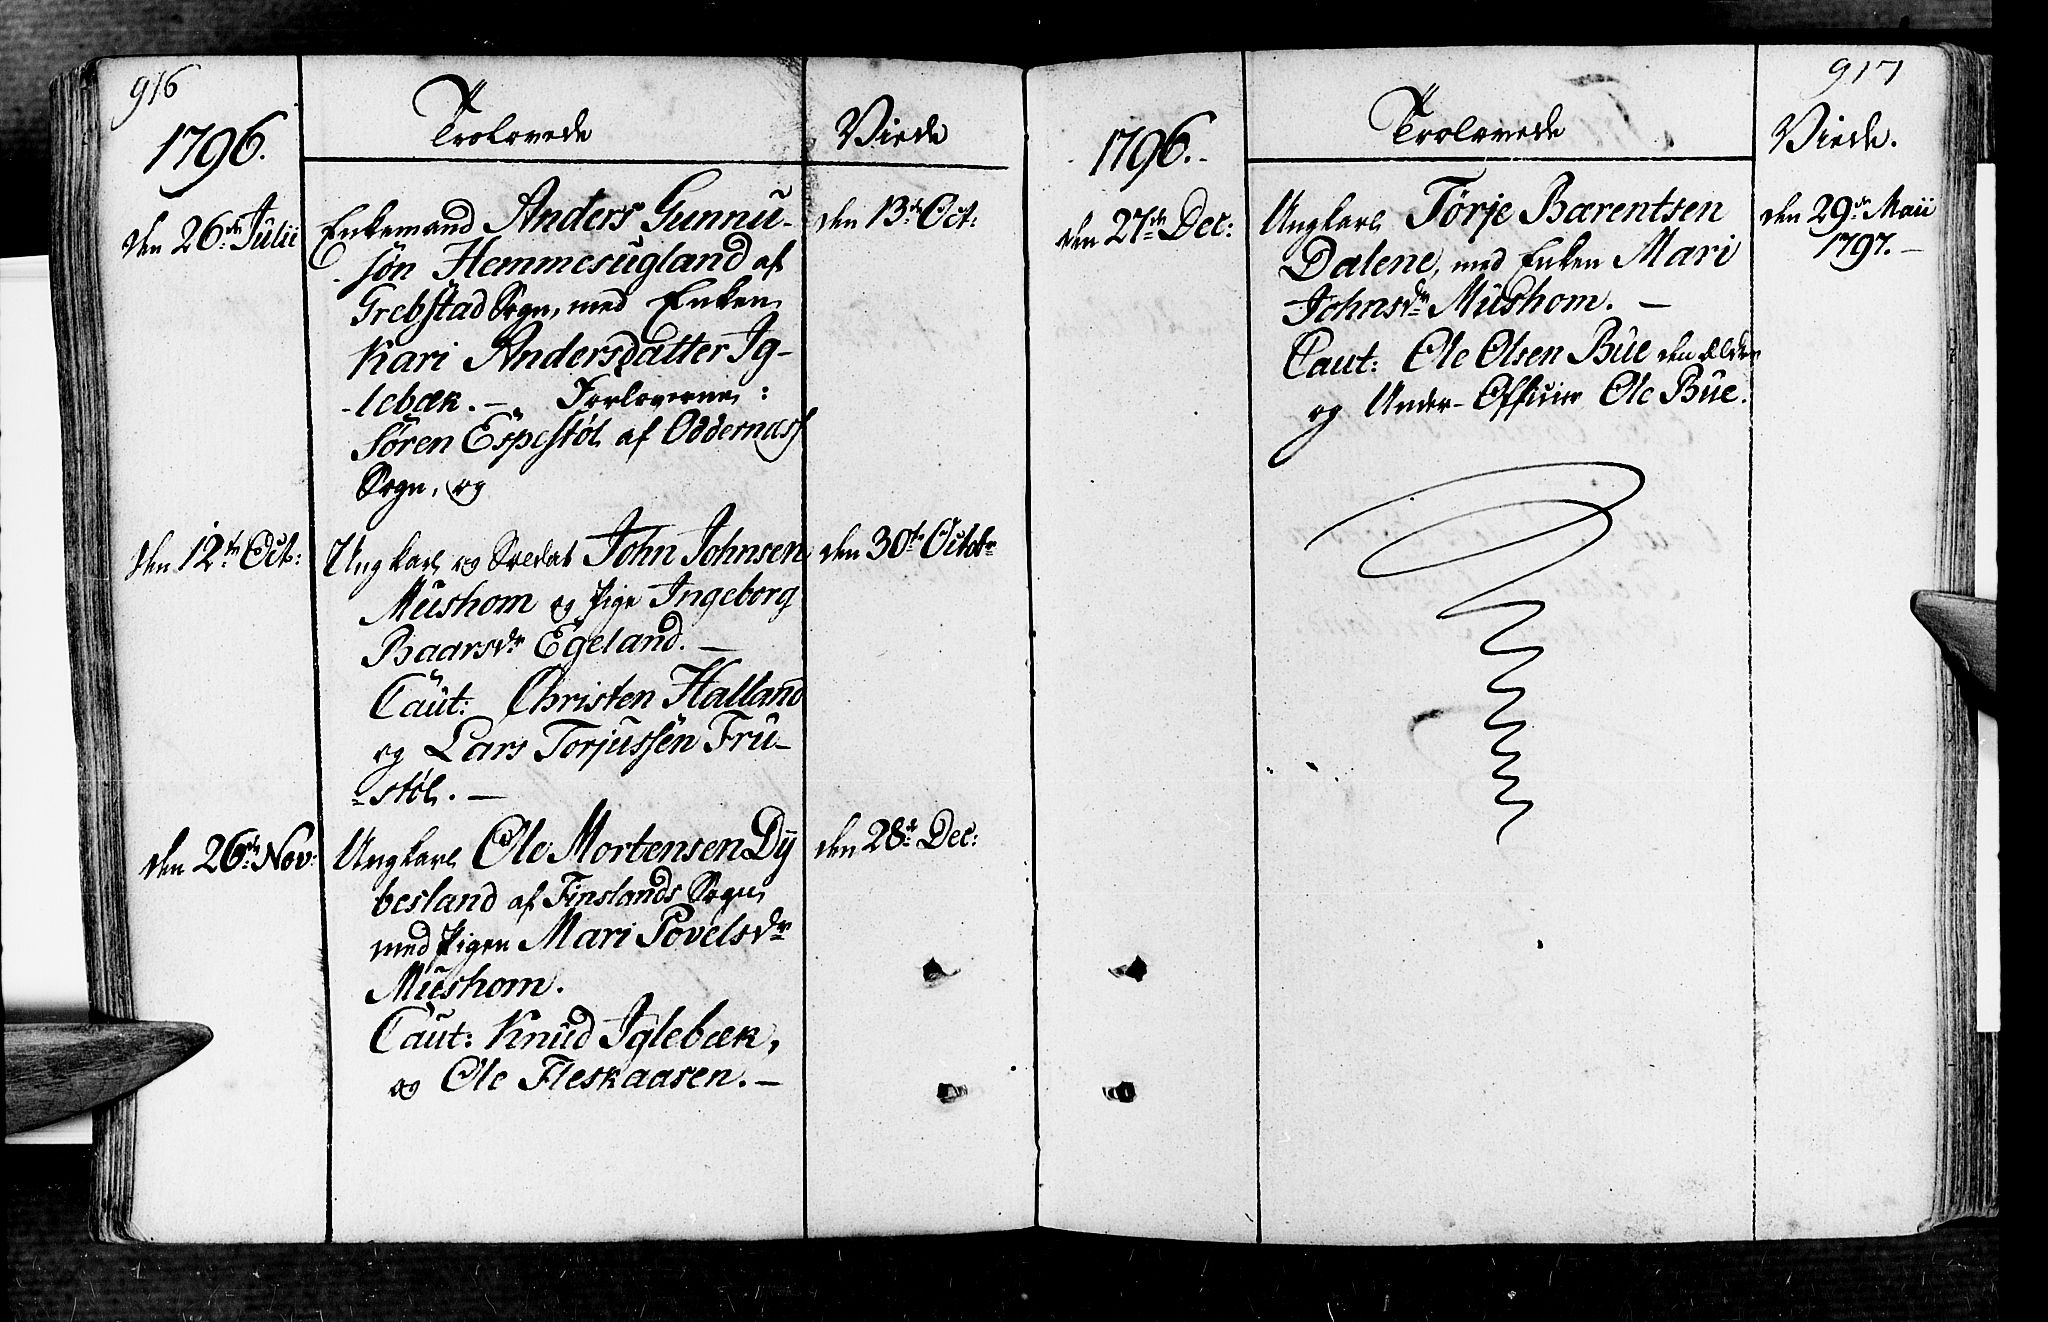 916
1796.
Trolovede
Viede
den 26de Julii
Enkemand Anders Gunnu-
søn Hemmesugland af
Grebstad Sogn, med Enken
Kari Andersdatter Ig-
lebæk. — Forloverne:
Søren Espestøl af Oddernæss
Sogn, og
den 13de Oct:
den 12te Oct:
Ungkarl og Soldat John Johnsen
Mushom og Pige Ingeborg
Baarsdr Egeland. —
Caut: Christen Halland
og Lars Torjussen Fru-
støl. —
den 30te Octobr
den 26de Nov:
Ungkarl Ole Mortensen Dÿ
besland af Finslands Sogn
med Pigen Mari Povelsdr
Mushom.
Caut: Knud Iglebæk,
og Ole Fleskaasen. —
den 28de Dec:
917
1796.
Trolovede
Viede.
den 27de Dec:
Ungkarl Tørje Bærentsen
Dalene, med Enken Mari
Johnsdr Mushom. —
Caut: Ole Olsen Bue den ældre
og Under-Officier Ole Bue.
den 29de Maii
1797. —